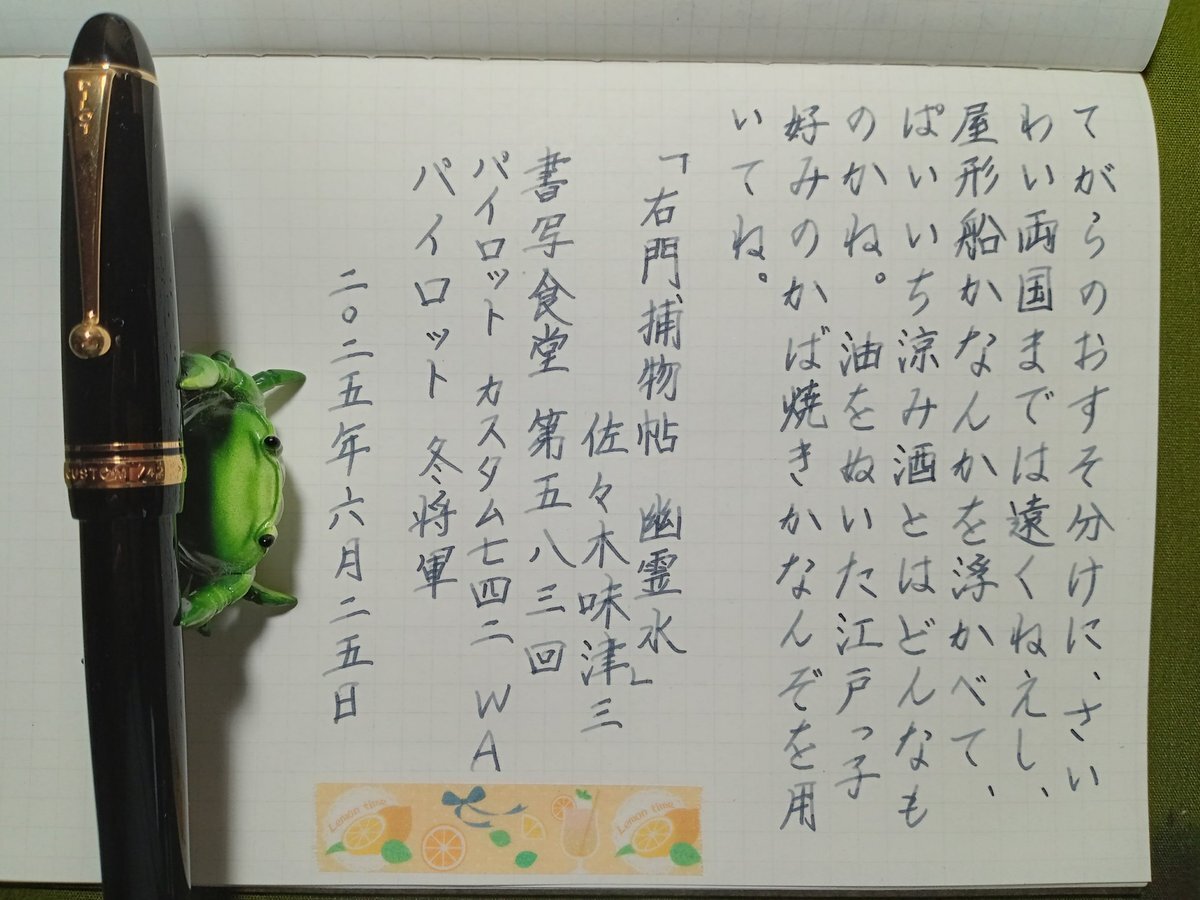 てがらのおすそ分けに、さい
わい両国までは遠くねえし、
屋形船かなんかを浮かべて、
ぱいいち涼み酒とはどんなも
のかね。油をぬいた江戸っ子
好みのかば焼きかなんぞを用
いてね。
「右門捕物帖 幽霊水」
佐々木味津三
書写食堂 第五八三回
パイロット カスタム七四二 WA
パイロット 冬将軍
二〇二五年六月二五日
Lemon time
Lemon time
CUSTOM 742